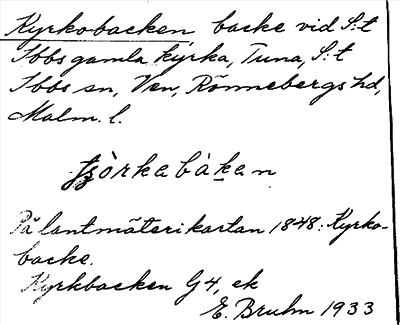 Kyrkobacken, backe vid S:t
Ibbs gamla kyrka, Tuna, S:t
Ibbs sn, Ven, Rönnebergs hd,
Malm. l.
På lantmäterikartan 1848: Kyrko-
backe.
Kyrkbacken G4, ek
E. Bruhn 1933